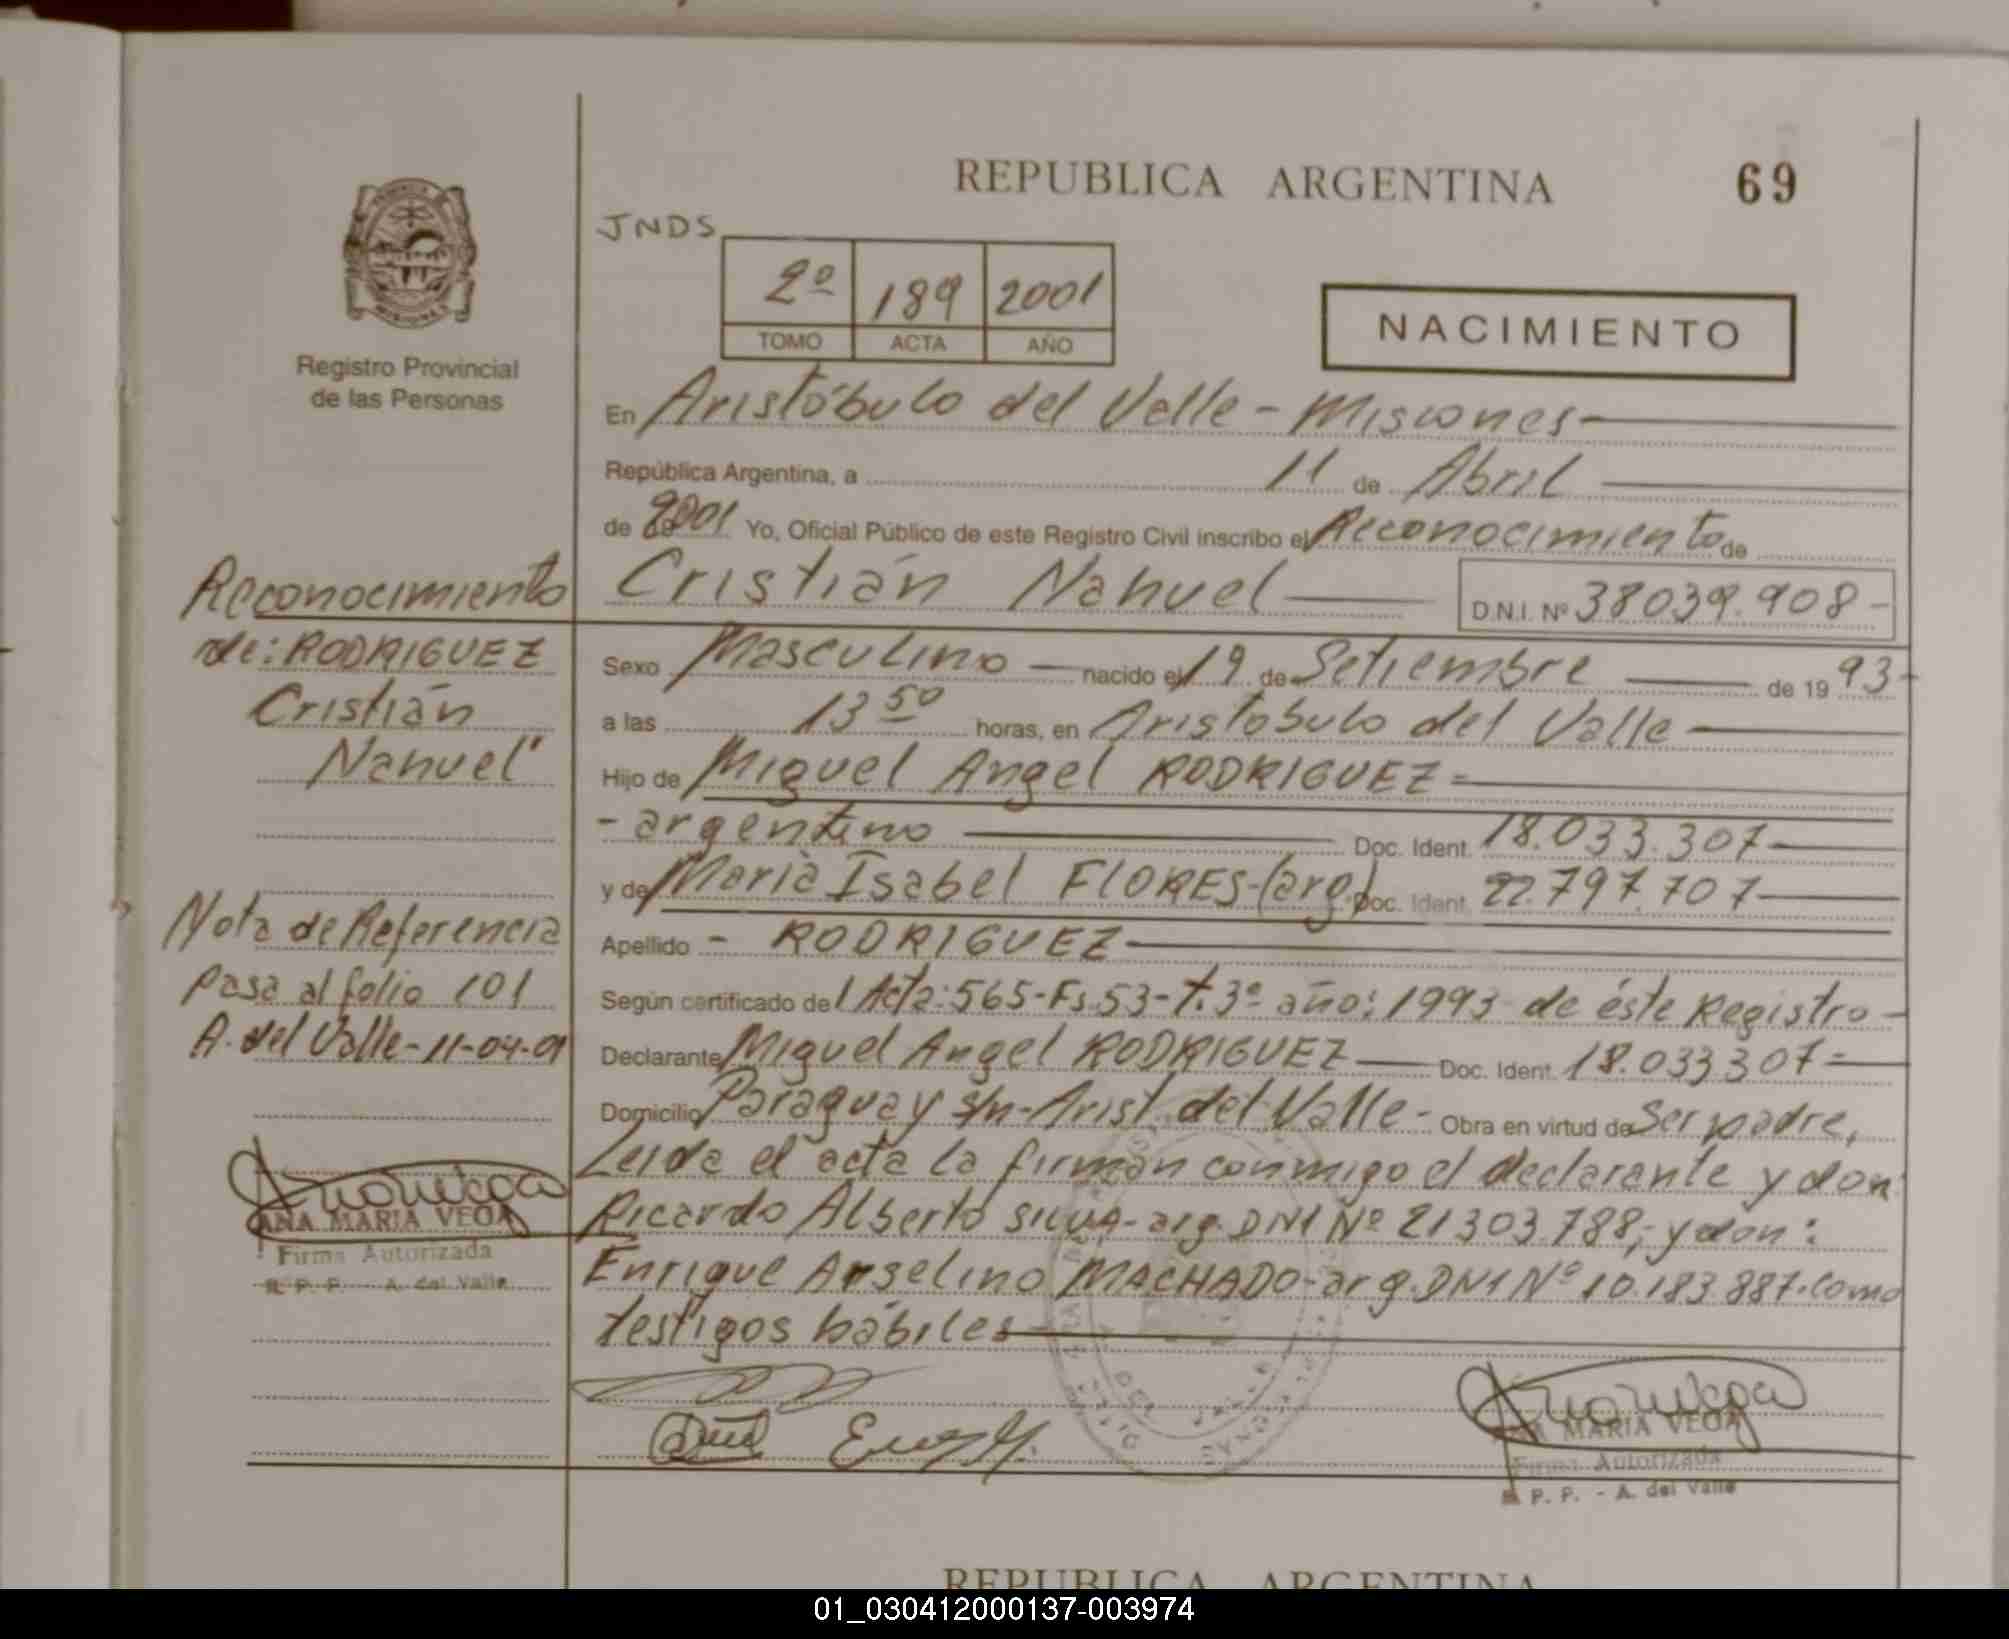 REPUBLICA ARGENTINA
69
JNDS
2º 189 2001
TOMO ACTA AÑO
NACIMIENTO
Registro Provincial
de las Personas
En Aristóbulo del Valle - Misiones -
República Argentina, a 11 de Abril
de 2001 Yo, Oficial Público de este Registro Civil inscribo el Reconocimiento de
Cristián Nahuel D.N.I. Nº 38039.908 -
Sexo Masculino nacido el 19 de Setiembre de 19 93 -
a las 13 50 horas, en Aristóbulo del Valle
Hijo de Miguel Angel RODRIGUEZ =
- argentino Doc. Ident. 18.033.307
y de María Isabel FLORES - (arg.) Doc. Ident. 22.797.707
Apellido - RODRIGUEZ
Según certificado de Acta: 565 - Fs. 53 - t. 3º año: 1993 de éste Registro -
Declarante Miguel Angel RODRIGUEZ Doc. Ident. 18.033307 =
Domicilio Paraguay s/n - Arist. del Valle - Obra en virtud de Ser padre,
Leida el acta la firman conmigo el declarante y don
Ricardo Alberto SILVA - arg. DNI Nº 21303.788, y don:
Enrique Anselino MACHADO - arg. DNI Nº 10.183.887. como
testigos hábiles
Reconocimiento
de: RODRIGUEZ
Cristián
Nahuel"
Nota de Referencia
Pasa al folio 101
A. del Valle - 11-04-01
ANA MARIA VEGA
Firma Autorizada
R. P. P. - A. del Valle
MARIA VEGA
Firma Autorizada
P. P. - A. del Valle
REPUBLICA ARGENTINA
01_030412000137-003974